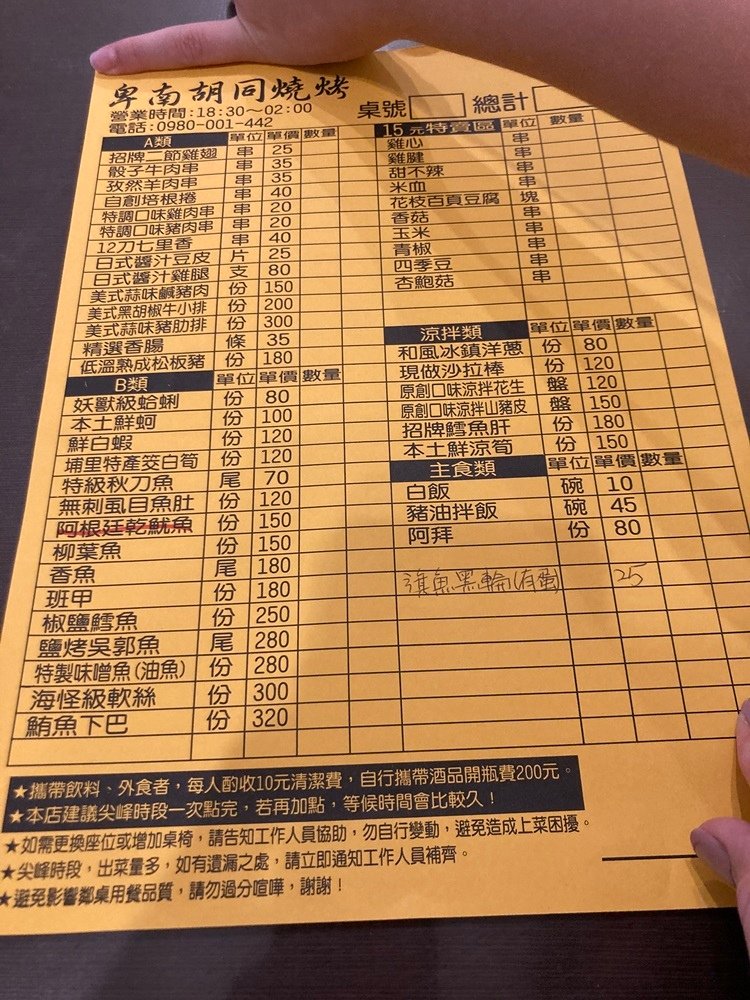 卑南胡同燒烤
營業時間:18:30~02:00
電話:0980-001-442
桌號 總計
A類 單位 單價 數量
招牌二節雞翅 串 25
骰子牛肉串 串 35
孜然羊肉串 串 35
自創培根捲 串 40
特調口味雞肉串 串 20
特調口味豬肉串 串 20
12刀七里香 串 40
日式醬汁豆皮 片 25
日式醬汁雞腿 支 80
美式蒜味鹹豬肉 份 150
美式黑胡椒牛小排 份 200
美式蒜味豬肋排 份 300
精選香腸 條 35
低溫熟成松板豬 份 180
B類 單位 單價 數量
妖獸級蛤蜊 份 80
本土鮮蚵 份 100
鮮白蝦 份 120
埔里特產茭白筍 份 120
特級秋刀魚 尾 70
無刺虱目魚肚 份 120
阿根廷乾魷魚 份 150
柳葉魚 份 150
香魚 尾 180
班甲 份 180
椒鹽鱈魚 份 250
鹽烤吳郭魚 尾 280
特製味噌魚(油魚) 份 280
海怪級軟絲 份 300
鮪魚下巴 份 320
15元特賣區 單位 數量
雞心 串
雞腱 串
甜不辣 串
米血 串
花枝百頁豆腐 塊
香菇 串
玉米 串
青椒 串
四季豆 串
杏鮑菇 串
涼拌類 單位 單價 數量
和風冰鎮洋蔥 份 80
現做沙拉棒 份 120
原創口味涼拌花生 盤 120
原創口味涼拌山豬皮 盤 150
招牌鱈魚肝 份 180
本土鮮涼筍 份 150
主食類 單位 單價 數量
白飯 碗 10
豬油拌飯 碗 45
阿拜 份 80
旗魚黑輪(有蛋) 25
★攜帶飲料、外食者,每人酌收10元清潔費,自行攜帶酒品開瓶費200元。
★本店建議尖峰時段一次點完,若再加點,等候時間會比較久!
★如需更換座位或增加桌椅,請告知工作人員協助,勿自行變動,避免造成上菜困擾。
★尖峰時段,出菜量多,如有遺漏之處,請立即通知工作人員補齊。
★避免影響鄰桌用餐品質,請勿過分喧嘩,謝謝!